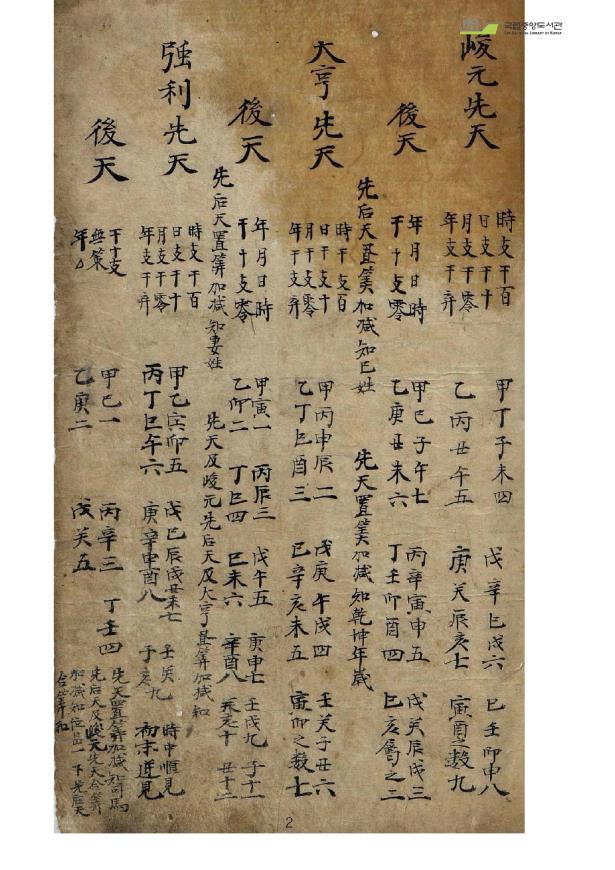 국립중앙도서관
THE NATIONAL LIBRARY OF KOREA
峻元先天
時支干百
日支干十
月支干零
年支干弃
甲丁子未四 戊辛巳戌六 己壬卯申八
乙丙丑午五 庚癸辰亥七 寅酉之数九
後天
年月日時
干十支零
甲己子午七 丙辛寅申五 戊癸辰戌三
乙庚丑未六 丁壬卯酉四 巳亥之二
先后天置筭加减知己姓 先天置筭加减知乾坤年歲
大亨先天
時干支百
日干支十
月干支零
年干支弃
甲丙申辰二 戊庚午戌四 壬癸子丑六
乙丁巳酉三 己辛亥未五 寅卯之数七
後天
年月日時
干十支零
甲寅一 丙辰三 戊午五 庚申七 壬戌九 子十一
乙卯二 丁巳四 己未六 辛酉八 癸亥十 丑十二
先后天置筭加减知妻姓 先天及峻元先后天及大亨置筭加减知
强利先天
時支干百
日支干十
月支干零
年支干弃
甲乙寅卯五 戊己辰戌丑未七 壬癸
丙丁巳午六 庚辛申酉八 子亥九
時中順見
初末逆見
後天
干十支
無策
年
甲己一 丙辛三 丁壬四
乙庚二 戊癸五
先天置筭加减知司馬
先后天及峻元先天合筭
加减知位品一下先后天
合筭知
2